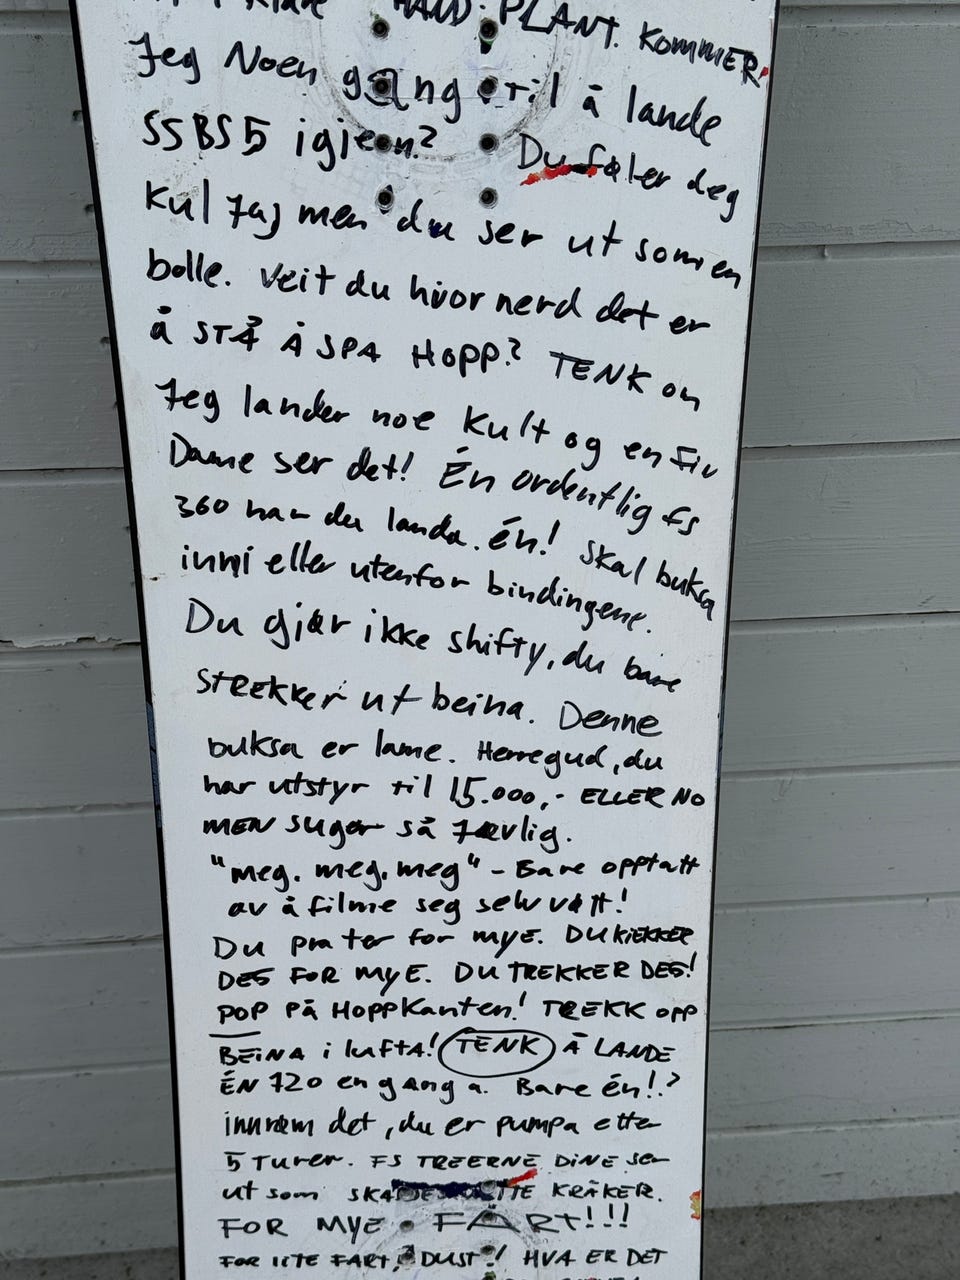 HAND. PLANT. KOMMER.
Jeg Noen gang til å lande
SSBS5 igjen? Du føler deg
Kul Jaj men du ser ut som en
bolle. Veit du hvor nerd det er
å STÅ Å SPA HOPP? TENK om
Jeg lander noe Kult og en Fin
Dame ser det! Én ordentlig FS
360 har du landa. én! Skal buksa
inni eller utenfor bindingene.
Du gjør ikke shifty, du bare
STREKKER ut beina. Denne
buksa er lame. Herregud, du
har utstyr til 15.000,- ELLER NO
MEN suger så Jævlig.
"meg. meg. meg" - Bare opptatt
av å filme seg selv vøtt!
Du prater for MYE. DU KIEKKER
DEG FOR MYE. DU TREKKER DEG!
POP PÅ HOPPKANTEN! TREKK OPP
BEINA i lufta! TENK Å LANDE
ÉN 720 en gang a. Bare én!?
innrøm det, du er pumpa etter
5 Turer. FS TREERNE DINE ser
ut som KRÅKER.
FOR MYE FART!!!
FOR LITE FART, DUST! HVA ER DET